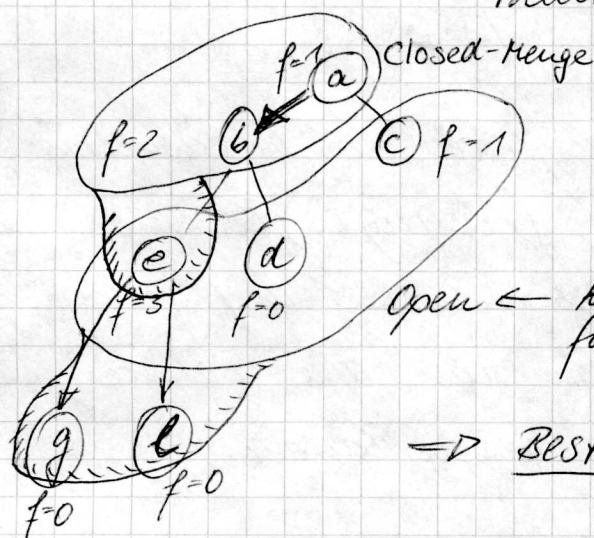 f=1
a
Closed-Menge
f=2
b
c
f=1
e
d
f=3
f=0
Open ←
g
l
⇒ Best
f=0
f=0